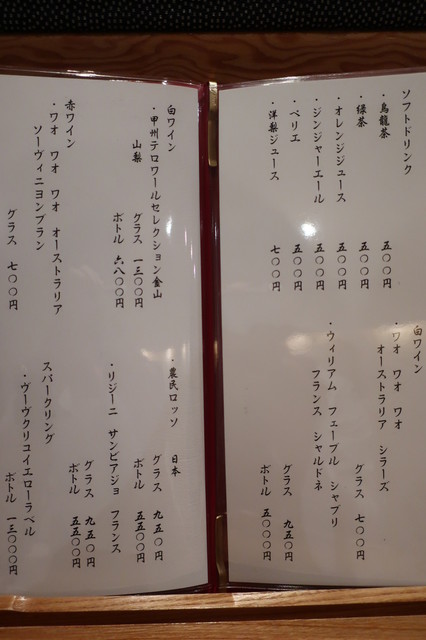 ソフトドリンク
・烏龍茶 五〇〇円
・緑茶 五〇〇円
・オレンジジュース 五〇〇円
・ジンジャーエール 五〇〇円
・ペリエ 五〇〇円
・洋梨ジュース 七〇〇円
白ワイン
・ワオ ワオ ワオ
オーストラリア シラーズ
グラス 七〇〇円
・ウィリアム フェーブル シャブリ
フランス シャルドネ
グラス 九五〇円
ボトル 五〇〇〇円
白ワイン
・甲州テロワールセレクション金山
山梨
グラス 一三〇〇円
ボトル 六八〇〇円
赤ワイン
・ワオ ワオ ワオ オーストラリア
ソーヴィニヨンブラン
グラス 七〇〇円
・農民ロッソ 日本
グラス 九五〇円
ボトル 五五〇〇円
・リジーニ サンビアジョ フランス
グラス 九五〇円
ボトル 五五〇〇円
スパークリング
・ヴーヴクリコイエローラベル
ボトル 一三〇〇〇円